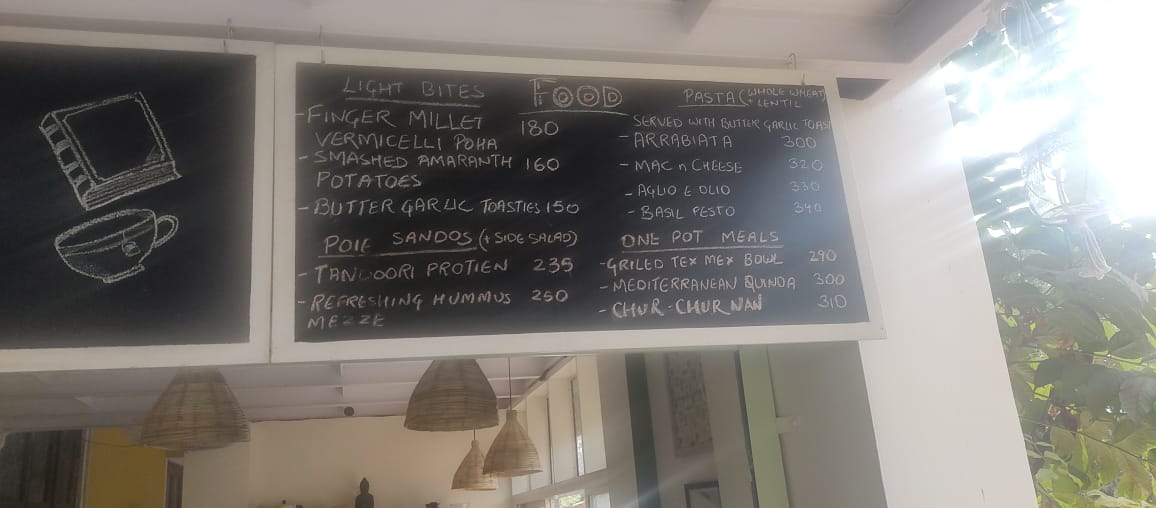 FOOD
LIGHT BITES
- FINGER MILLET 180
VERMICELLI POHA
- SMASHED AMARANTH 160
POTATOES
- BUTTER GARLIC TOASTIES 150
POIE SANDOS (+ SIDE SALAD)
- TANDOORI PROTIEN 235
- REFRESHING HUMMUS 250
MEZZE
PASTA (WHOLE WHEAT)
+ LENTIL
SERVED WITH BUTTER GARLIC TOAST
- ARRABIATA 300
- MAC n CHEESE 320
- AGLIO E OLIO 330
- BASIL PESTO 340
ONE POT MEALS
- GRILED TEX MEX BOWL 290
- MEDITERRANEAN QUINOA 300
- CHUR-CHUR NAN 310